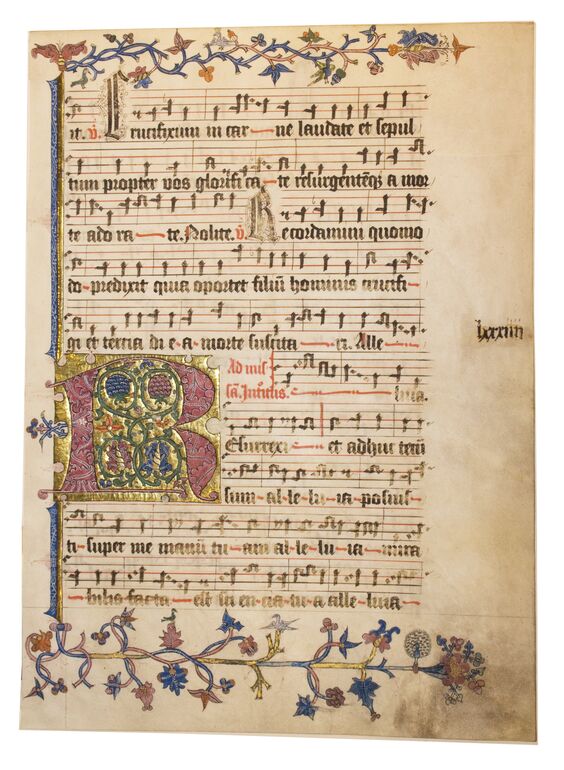 it. v̄. Crucifixum in car-ne laudate et sepul
tum propter vos glorifi ca-te resurgentēq; a mor
te ado ra-te. Nolite. v̄ Recordamini quomo
do predixit quia oportet filiū hominis crucifi-
gi et tercia di-e-a-morte suscita-ri. Alle-
lxxxiiii
Ad mis
sā.
luia.
Resurrexi-et adhuc tecū
sum-al-le-lu-ia posuis-
ti-super me manū tu-am al-le-lu-ia-mira
bilis facta-est sci en-cia-tu-a alle-luia-